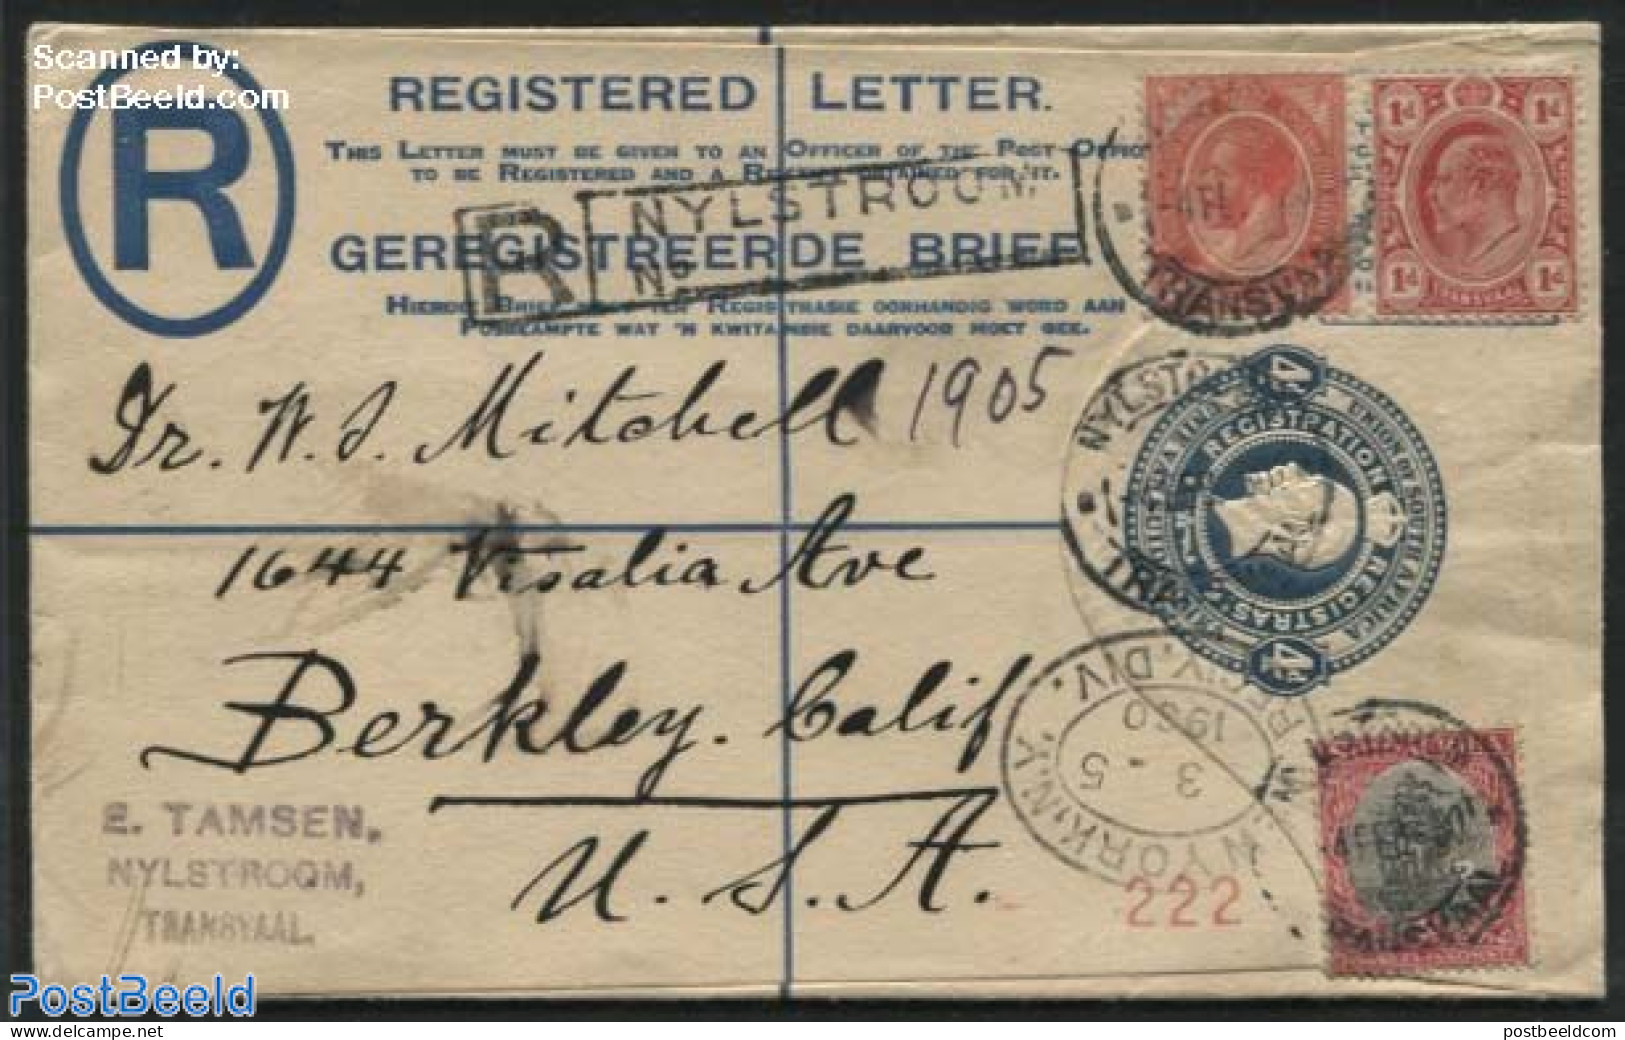 Scanned by:
PostBeeld.com
R
REGISTERED LETTER.
THIS LETTER MUST BE GIVEN TO AN OFFICER OF THE POST OFFICE
TO BE REGISTERED AND A RECEIPT OBTAINED FOR IT.
R NYLSTROOM.
No
GEREGISTREERDE BRIEF
HIERDIE BRIEF MOET TEN REGISTRASIE OORHANDIG WORD AAN
POSBEAMPTE WAT 'N KWITANSIE DAARVOOR MOET GEE.
1d 1d
1d 1d
TRANSVAAL
TRANSVAAL
Dr. W. J. Mitchell 1905
1644 Visalia Ave
Berkley. Calif
U. S. A.
NYLSTROOM
4d
REGISTRATION
UNION OF SOUTH AFRICA
REGISTRASIE
4d
NEW YORK, N.Y.
DIV.
3 - 5
1930
222
E. TAMSEN,
NYLSTROOM,
TRANSVAAL.
TRANSVAAL
PostBeeld
www.postbeeld.com
postbeeldcom